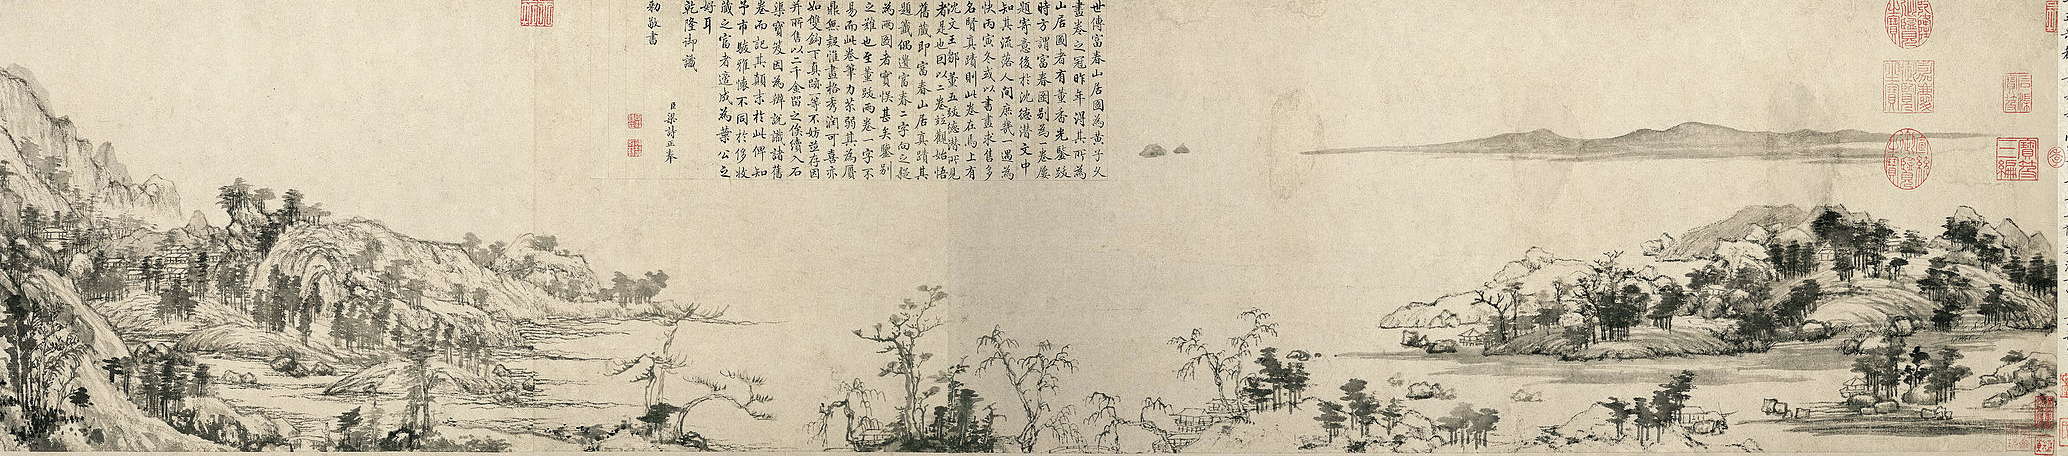 乾隆御覽之寶
嘉慶御覽之寶
宣統御覽之寶
石渠寶笈
寶笈三編
世傳富春山居圖為黃子久
畫卷之冠昨年得其所為
山居圖者有董香光鑒跋
時方謂富春圖別為一卷屢
題寄意後於沈德潛文中
知其流落人間庶幾一遇為
快丙寅冬或以書畫求售多
名賢真蹟則此卷在焉上有
沈文王鄒董五跋德潛所見
者是也因以二卷竝觀始悟
舊藏即富春山居真蹟其
題籤偶遺富春二字向之疑
為兩圖者實悞甚矣鑒別
之難也至董跋兩卷一字不
易而此卷筆力苶弱其為贋
鼎無疑惟畫格秀潤可喜亦
如雙鈎下真跡一等不妨竝存因
并所售以二千金留之俟續入石
渠寶笈因為辨說識諸舊
卷而記其顛末於此俾知
予市駿雅懷不同於侈收
藏之富者適成為葉公之
好耳
乾隆御識
臣梁詩正奉
勅敬書